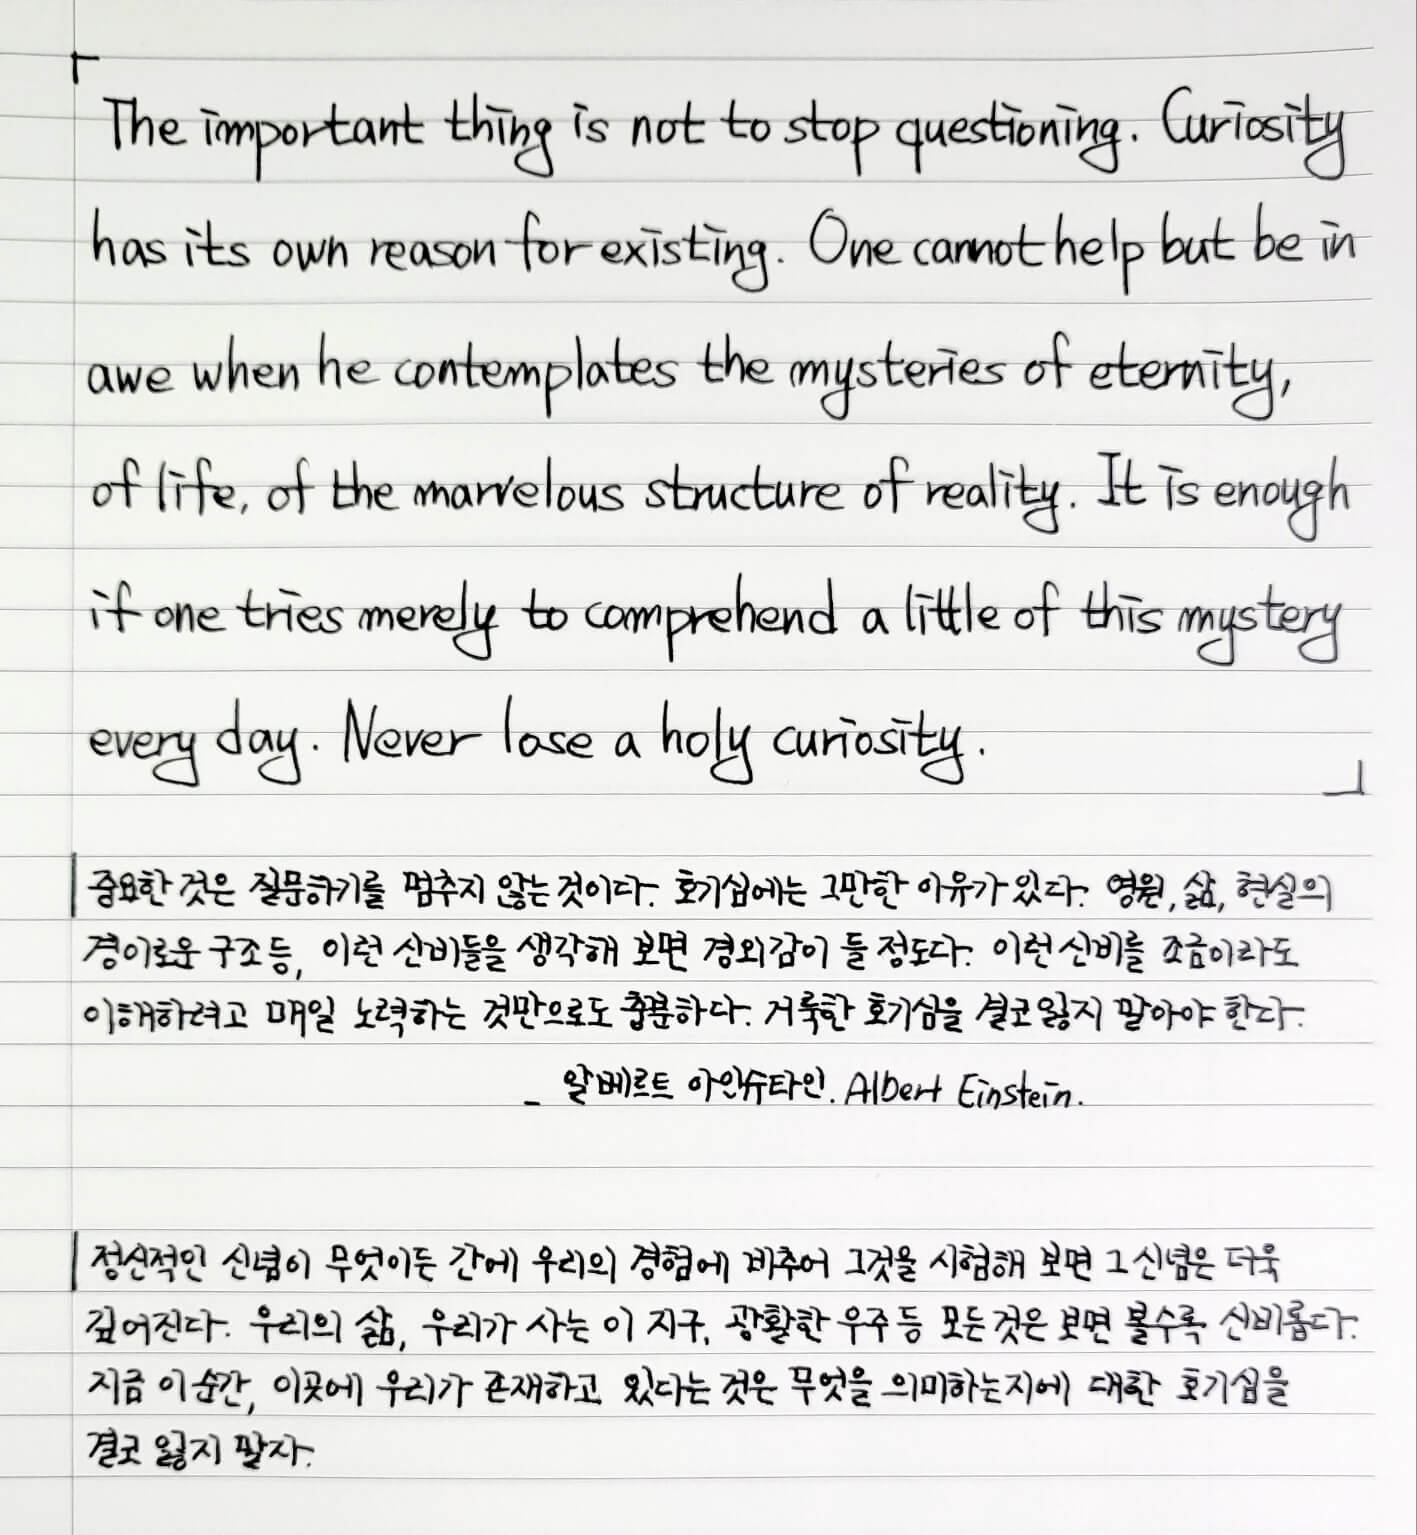 「The important thing is not to stop questioning. Curiosity
has its own reason for existing. One cannot help but be in
awe when he contemplates the mysteries of eternity,
of life, of the marvelous structure of reality. It is enough
if one tries merely to comprehend a little of this mystery
every day. Never lose a holy curiosity.」
중요한 것은 질문하기를 멈추지 않는 것이다. 호기심에는 그만한 이유가 있다. 영원, 삶, 현실의
경이로운 구조 등, 이런 신비들을 생각해 보면 경외감이 들 정도다. 이런 신비를 조금이라도
이해하려고 매일 노력하는 것만으로도 충분하다. 거룩한 호기심을 결코 잃지 말아야 한다.
_ 알베르트 아인슈타인. Albert Einstein.
정신적인 신념이 무엇이든 간에 우리의 경험에 비추어 그것을 시험해 보면 그 신념은 더욱
깊어진다. 우리의 삶, 우리가 사는 이 지구, 광활한 우주 등 모든 것은 보면 볼수록 신비롭다.
지금 이 순간, 이곳에 우리가 존재하고 있다는 것은 무엇을 의미하는지에 대한 호기심을
결코 잃지 말자.